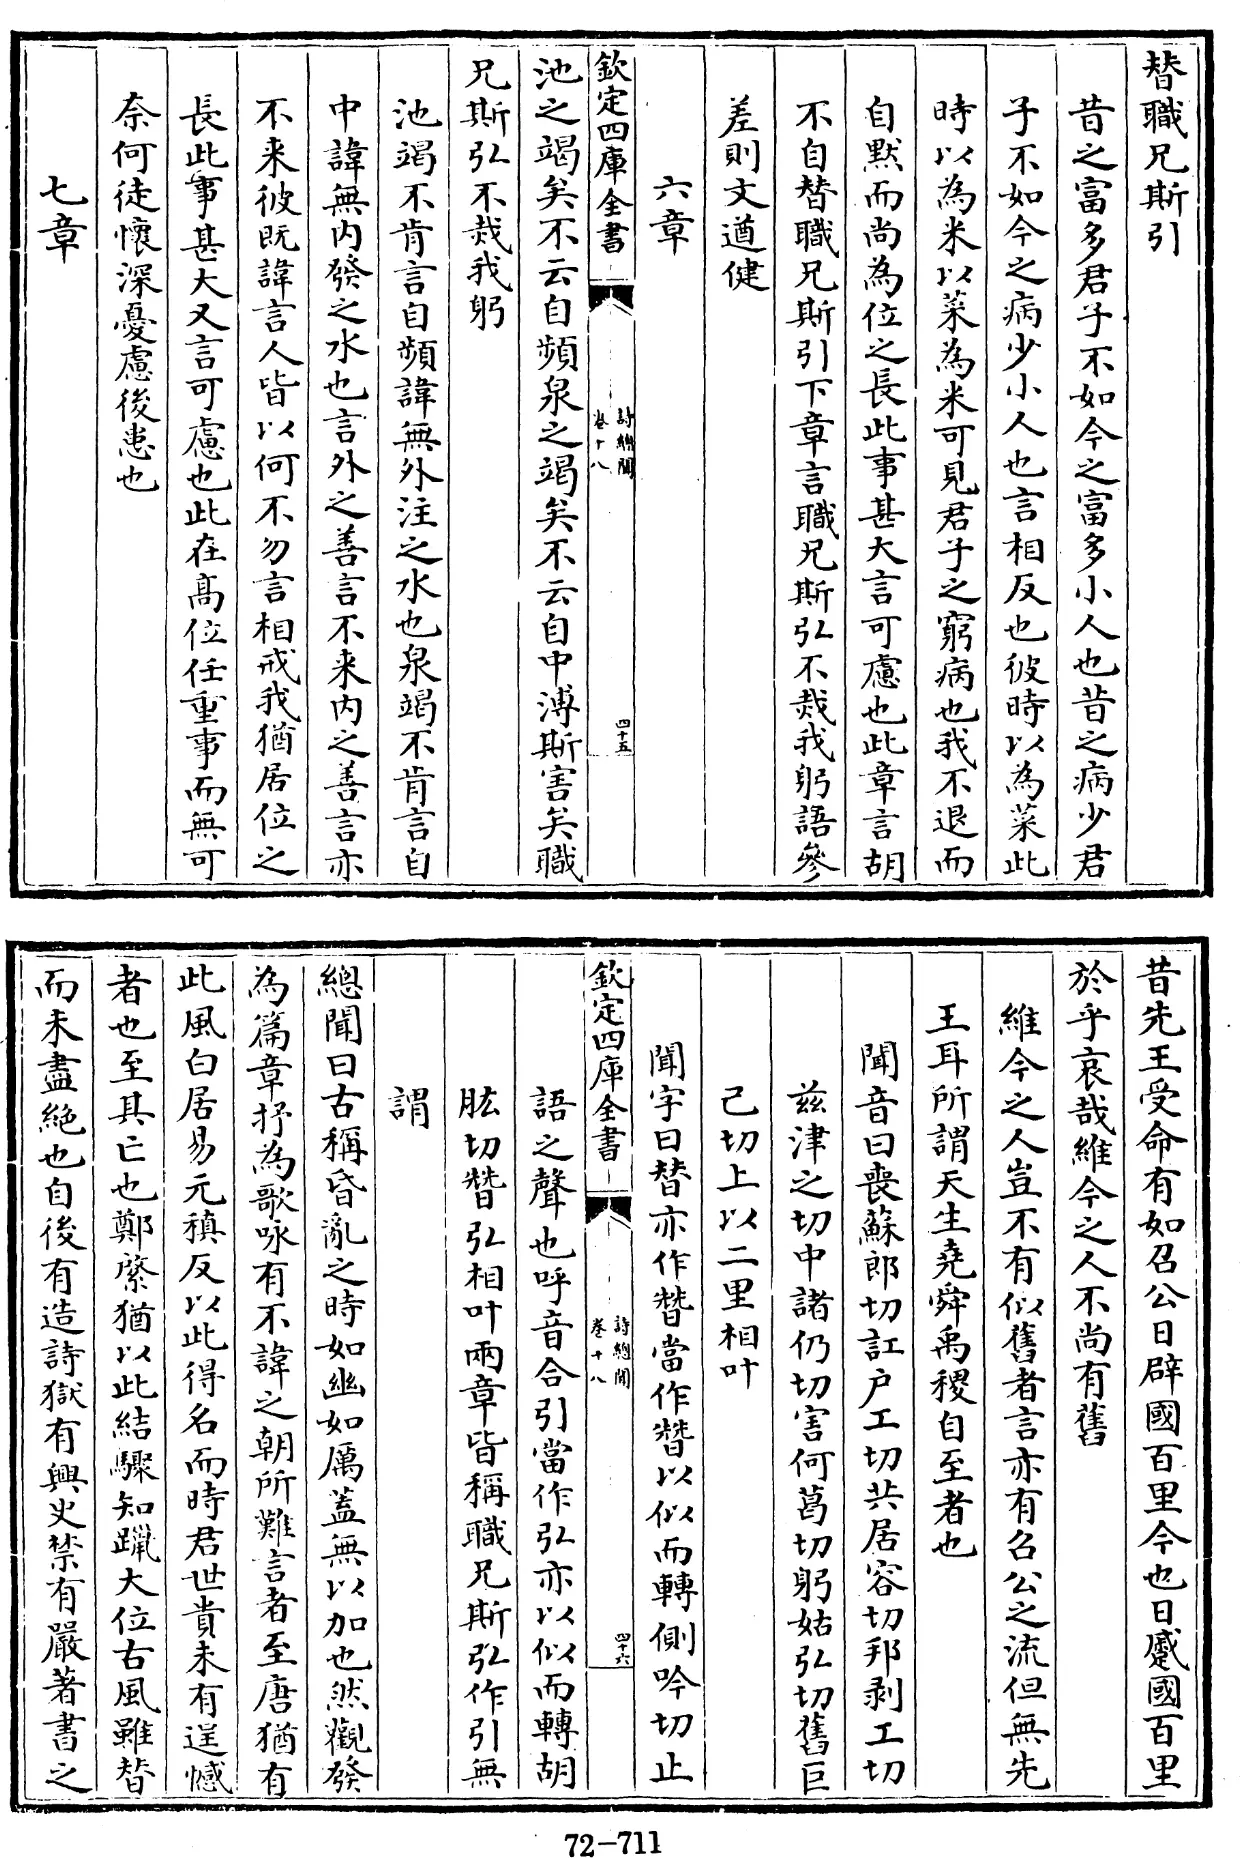 替職兄斯引
昔之富多君子不如今之富多小人也昔之病少君
子不如今之病少小人也言相反也彼時以為菜此
時以為米以菜為米可見君子之窮病也我不退而
自默而尚為位之長此事甚大言可慮也此章言胡
不自替職兄斯引下章言職兄斯弘不烖我躬語參
差則文遒健
六章
欽定四庫全書
詩總聞
卷十八
四十五
池之竭矣不云自頻泉之竭矣不云自中溥斯害矣職
兄斯弘不烖我躬
池竭不肯言自頻諱無外注之水也泉竭不肯言自
中諱無内發之水也言外之善言不来内之善言亦
不来彼既諱言人皆以何不勿言相戒我猶居位之
長此事甚大又言可慮也此在髙位任重事而無可
奈何徒懷深憂慮後患也
七章
昔先王受命有如召公日辟國百里今也日蹙國百里
於乎哀哉維今之人不尚有舊
維今之人豈不有似舊者言亦有召公之流但無先
王耳所謂天生堯舜禹稷自至者也
聞音曰喪蘇郎切訌户工切共居容切邦剥工切
兹津之切中諸仍切害何葛切躬姑弘切舊巨
己切上以二里相叶
聞字曰替亦作朁當作朁以似而轉側吟切止
欽定四庫全書
詩總聞
卷十八
四十六
語之聲也呼音合引當作弘亦以似而轉胡
肱切朁弘相叶兩章皆稱職兄斯弘作引無
謂
總聞曰古稱昏亂之時如幽如厲蓋無以加也然觀發
為篇章抒為歌咏有不諱之朝所難言者至唐猶有
此風白居易元稹反以此得名而時君世貴未有逞憾
者也至其亡也鄭綮猶以此結驟知躐大位古風雖替
而未盡絶也自後有造詩獄有興史禁有嚴著書之
72-711